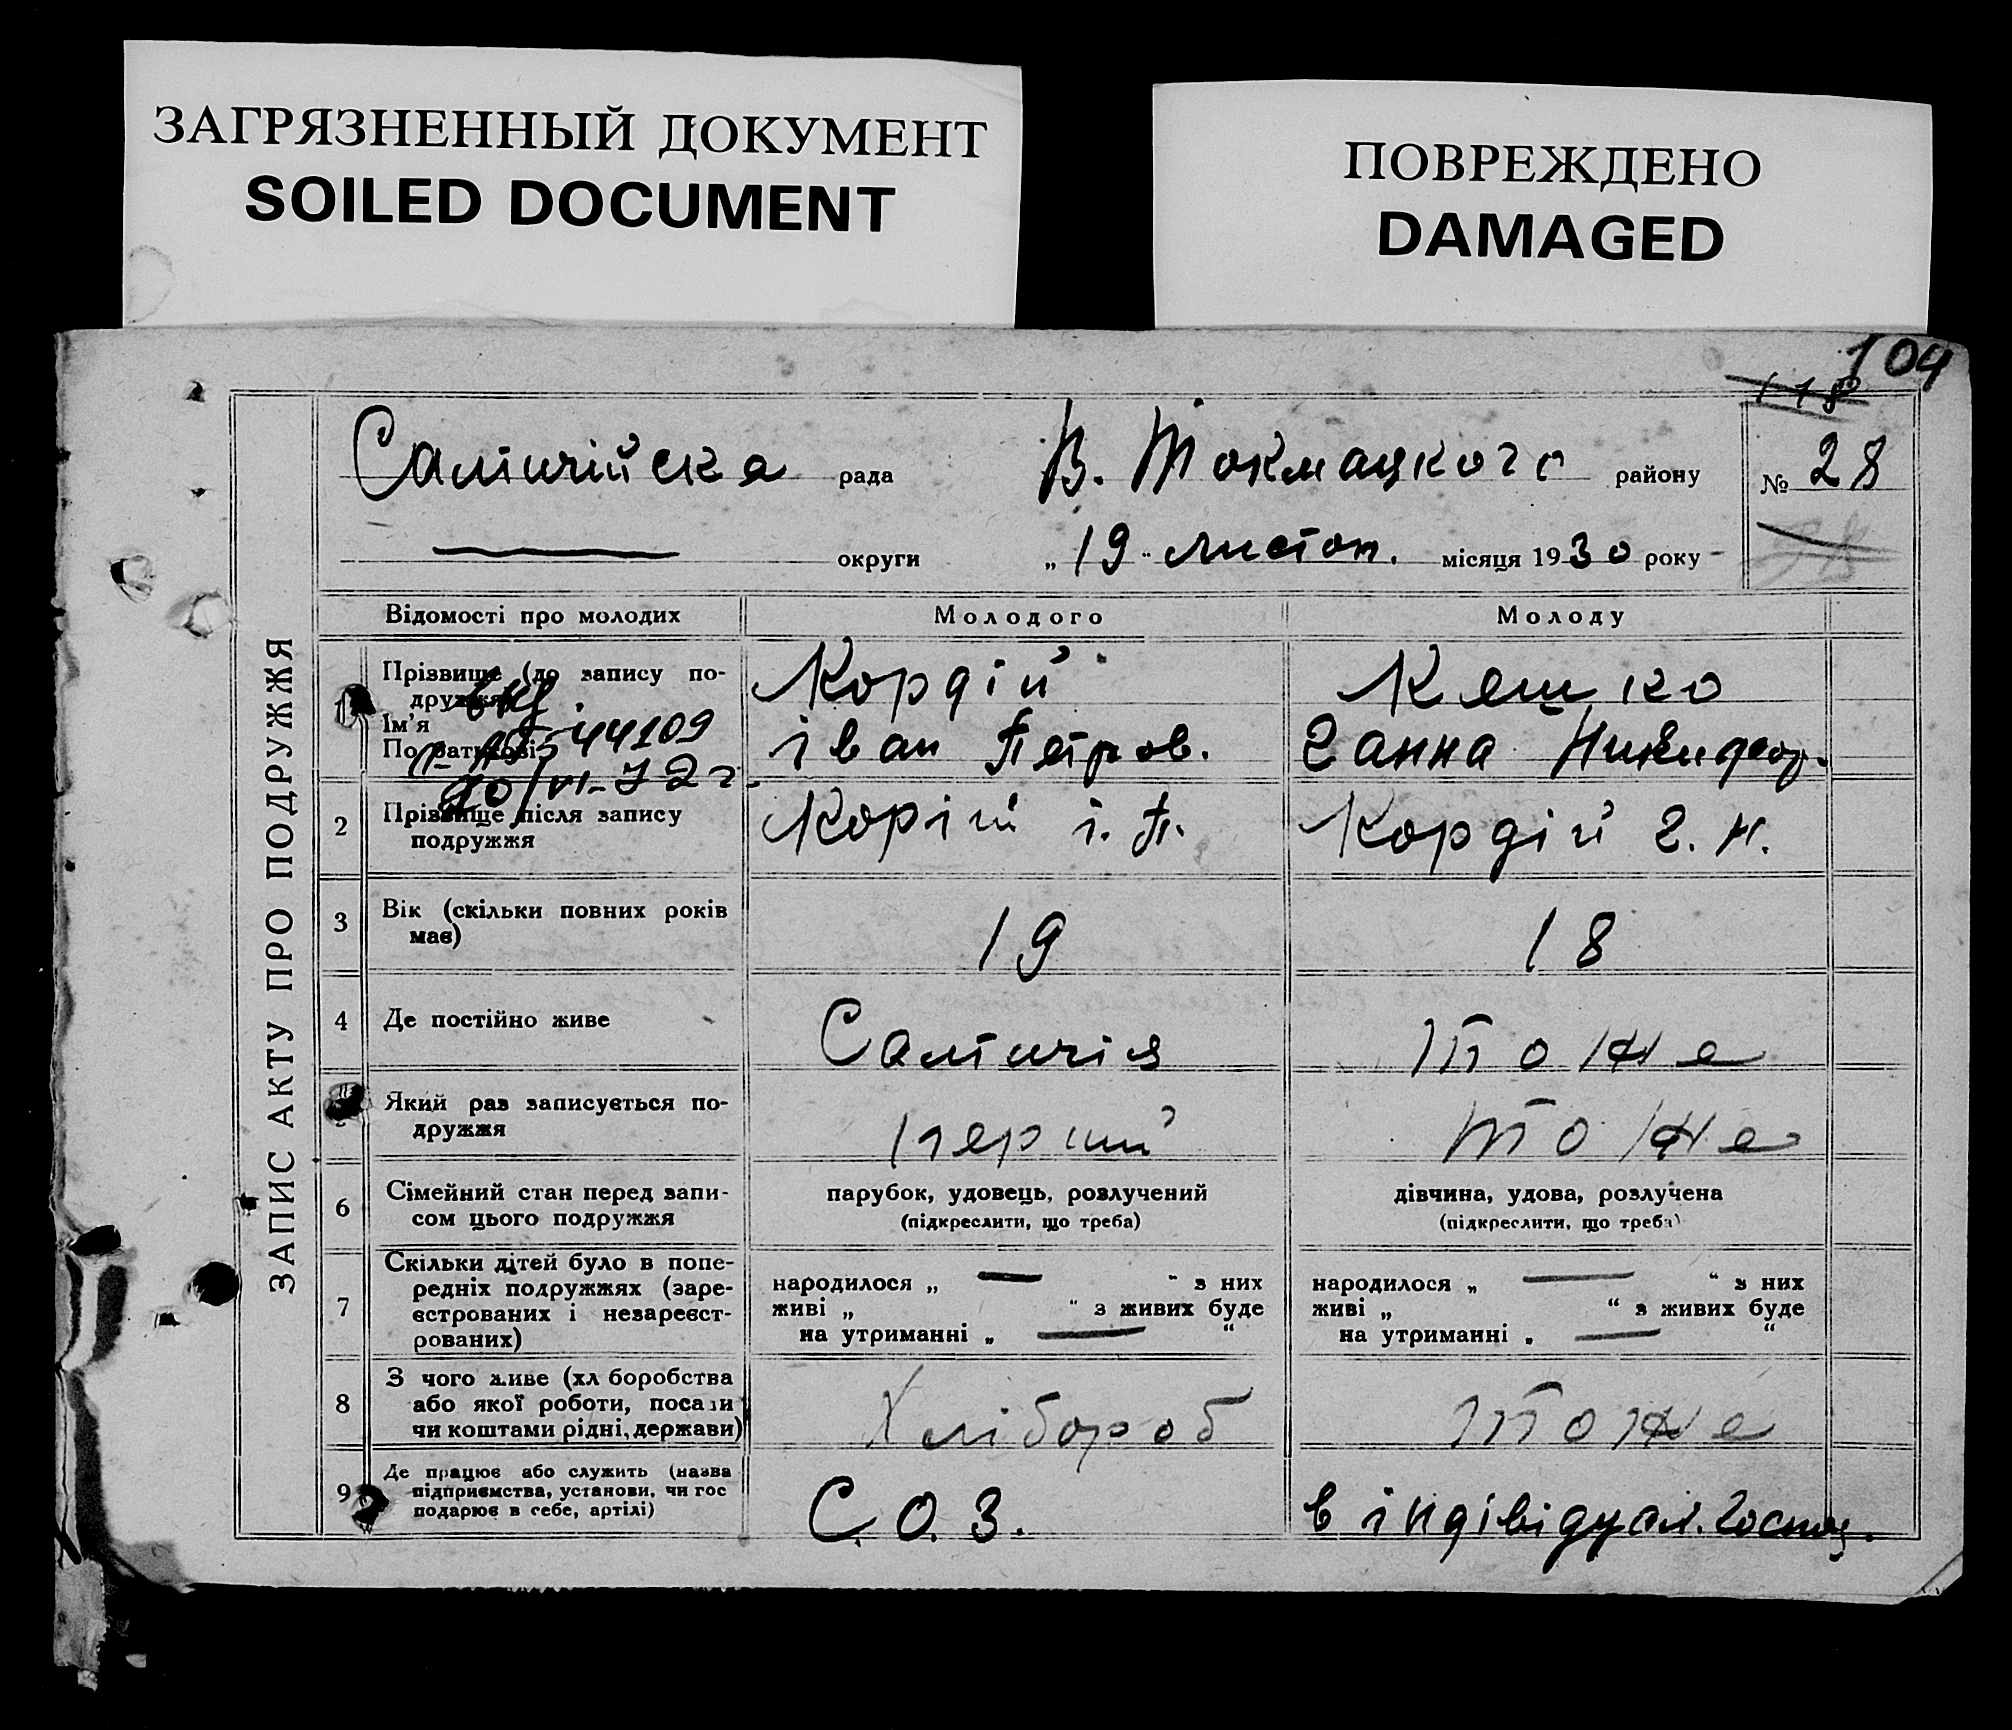 ЗАГРЯЗНЕННЫЙ ДОКУМЕНТ
SOILED DOCUMENT
ПОВРЕЖДЕНО
DAMAGED
104
118
ЗАПИС АКТУ ПРО ПОДРУЖЖЯ
Салтичійска рада В. Токмацкого району № 28
округи „19“ листоп. місяця 1930 року
Відомості про молодих Молодого Молоду
Прізвище (до запису по-
дружжя)
Ім'я
По батькові
44109
Кордій
іван Петров.
Кешко
Ганна Никифор.
2 Прізвище після запису
подружжя
Корій і. П.
Кордій Г. Н.
3 Вік (скільки повних років
має)
19
18
4 Де постійно живе
Салтичія
тоже
Який раз записується по-
дружжя
перший
тоже
6 Сімейний стан перед запи-
сом цього подружжя
парубок, удовець, розлучений
(підкреслити, що треба)
дівчина, удова, розлучена
(підкреслити, що треба)
7 Скільки дітей було в попе-
редніх подружжях (заре-
єстрованих і незареєст-
рованих)
народилося „ “ з них
живі „ “ з живих буде
на утриманні „ “
народилося „ “ з них
живі „ “ з живих буде
на утриманні „ “
8 З чого живе (хл боробства
або якої роботи, посади
чи коштами рідні, держави)
Хлібороб
тоже
9 Де працює або служить (назва
підприємства, установи, чи гос
подарює в себе, артілі)
С. О. З.
в індівідуал. госпо.